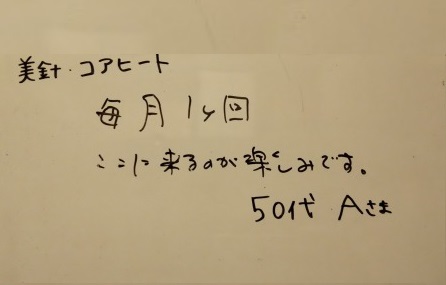 美針・コアヒート
毎月1ヶ回
ここに来るのが楽しみです。
50代 Aさま